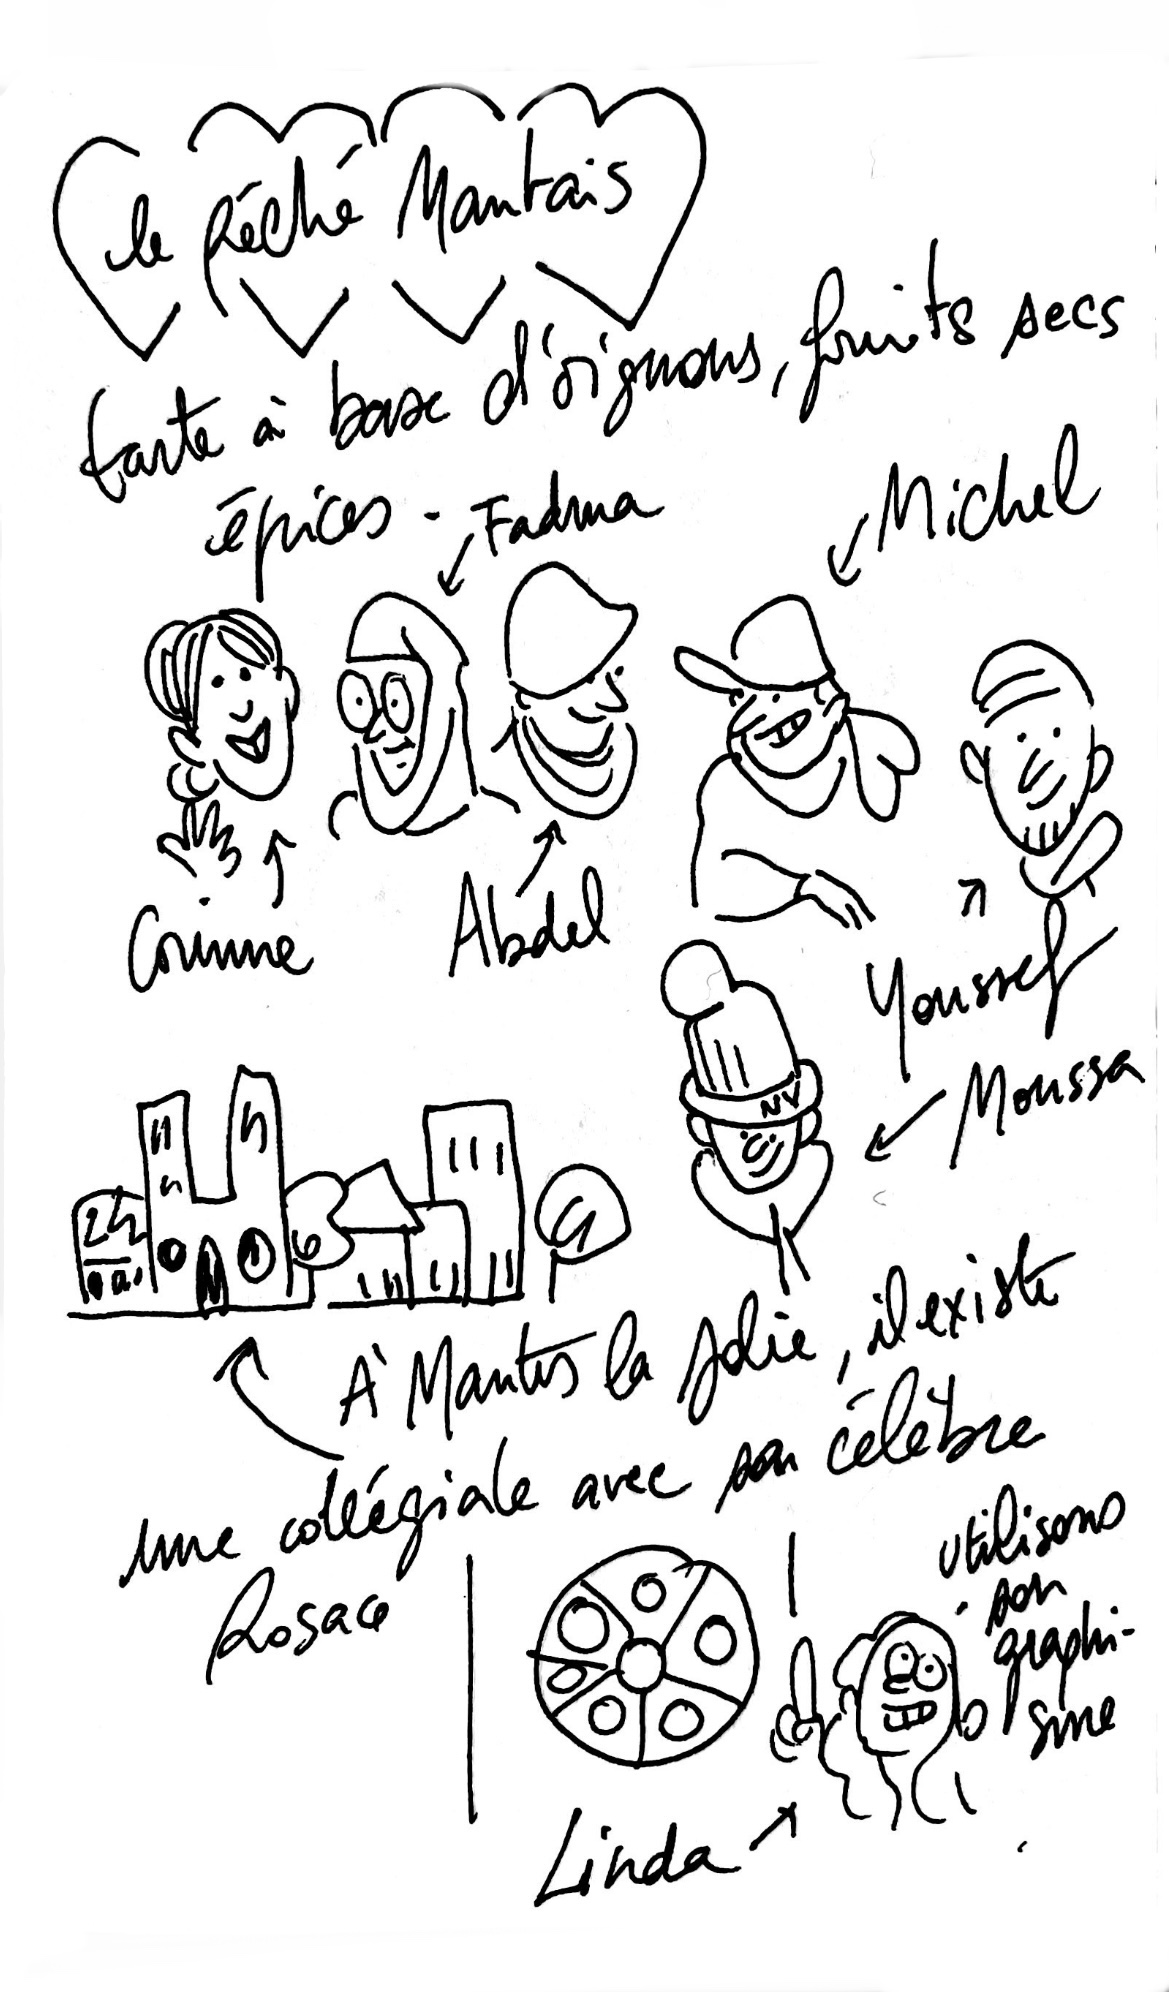 le Péché Mantais
tarte à base d'oignons, fruits secs
épices.
Fadma
Michel
Corinne
Abdel
Youssef
NY
Moussa
À Mantes la Jolie, il existe
une collégiale avec son célèbre
Rosace
utilisons
son
graphi-
sme
Linda